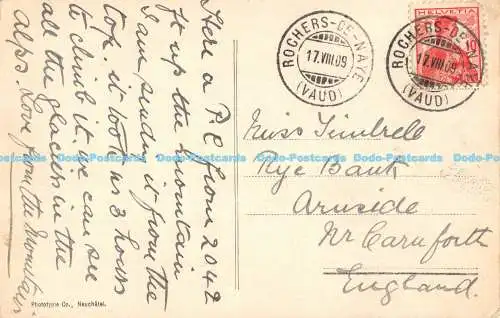 Here a P.C from 2042
ft up the mountain
I am sendin it from the
top. it took us 3 hours
to climb it. we can see
all the glaciers in the
Alps. Love from the Mountains
Phototypie Co., Neuchâtel.
ROCHERS-DE-NAYE
17.VIII.09
(VAUD)
HELVETIA
10
ROCHERS-DE-NAYE
17.VIII.09
(VAUD)
Miss Timbrell
Rye Bank
Arnside
Nr Carnforth
England.
Dodo-Postcards Dodo-Postcards Dodo-Postcards Dodo-Postcards